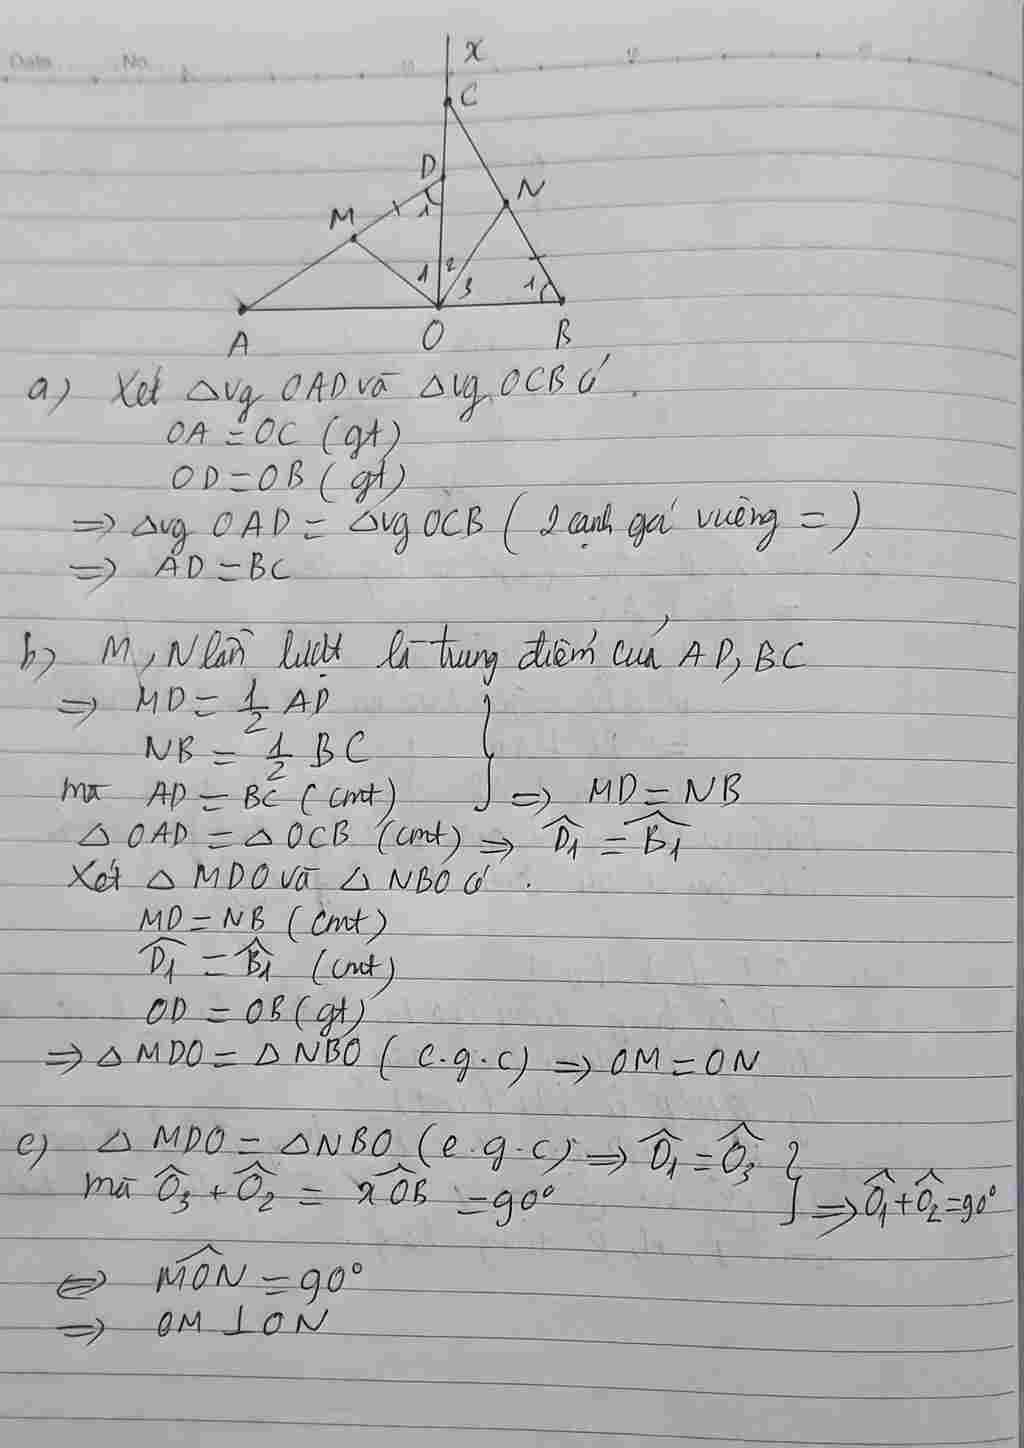 Date No
x
C
D
N
M
1
1 2
3
1
A
O
B
a) Xét △vg OAD và △vg OCB có.
OA = OC (gt)
OD = OB (gt)
=> △vg OAD = △vg OCB ( 2 cạnh góc vuông = )
=> AD = BC
b) M, N lần lượt là trung điểm của AD, BC
=> MD = 1/2 AD
NB = 1/2 BC
mà AD = BC (cmt) } => MD = NB
△ OAD = △ OCB (cmt) => D̂1 = B̂1
Xét △ MDO và △ NBO có.
MD = NB (cmt)
D̂1 = B̂1 (cmt)
OD = OB (gt)
=> △ MDO = △ NBO ( c.g.c) => OM = ON
c) △ MDO = △NBO (c.g.c) => Ô1 = Ô3
mà Ô3 + Ô2 = xÔB = 90° } => Ô1 + Ô2 = 90°
<=> MÔN = 90°
=> OM ⊥ ON